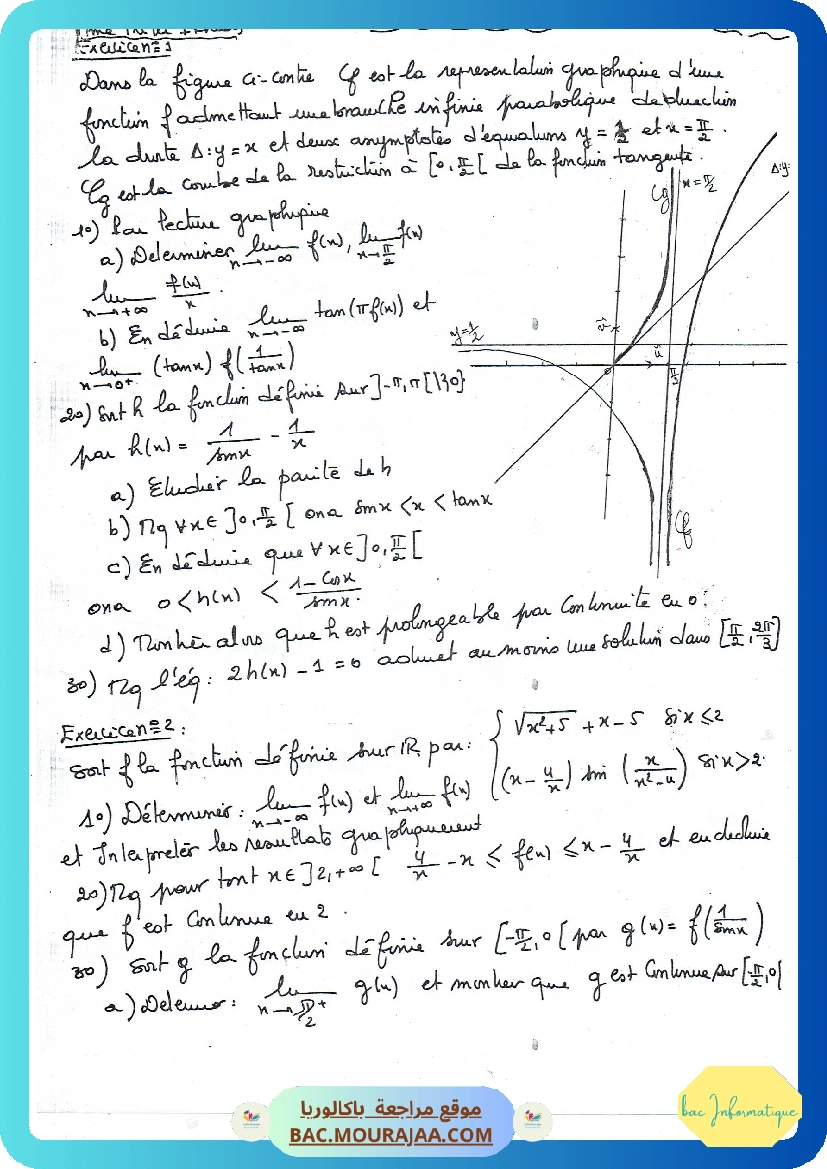 Exercice n°1
Dans la figure ci-contre Cf est la représentation graphique d'une
fonction f admettant une branche infinie parabolique de direction
la droite Δ: y = x et deux asymptotes d'équations y = 1/2 et x = π/2.
Cg est la courbe de la restriction à [0, π/2[ de la fonction tangente.
1°) Par lecture graphique
a) Determiner lim x→-∞ f(x), lim x→π/2 f(x)
lim x→+∞ f(x)/x.
b) En déduire lim x→-∞ tan(πf(x)) et
lim x→0+ (tanx) f(1/tanx)
2°) Soit h la fonction définie sur ]-π, π[\{0}
par h(x) = 1/sinx - 1/x
a) Etudier la parité de h
b) Mq ∀x∈]0, π/2[ ona sinx < x < tanx
c) En déduire que ∀x∈]0, π/2[
ona 0 < h(x) < 1-cosx/sinx.
d) Montrer alors que h est prolongeable par continuité en 0.
3°) Mq l'éq: 2h(x) - 1 = 0 admet au moins une solution dans [π/2, 2π/3]
Cg
x = π/2
Δ: y:
y = 1/2
v
u
0
π/2
Cf
Exercice n°2:
Soit f la fonction définie sur IR par: { √x²+5 + x - 5 si x ≤ 2
(x - 4/x) sin (x/x²-4) si x > 2.
1°) Déterminer: lim x→-∞ f(x) et lim x→+∞ f(x)
et Interpreter les resultats graphiquement
2°) Mq pour tout x∈]2, +∞[ 4/x - x ≤ f(x) ≤ x - 4/x et en deduire
que f est continue en 2.
3°) Soit g la fonction définie sur [-π/2, 0[ par g(x) = f(1/sinx)
a) Determiner: lim g(x) et montrer que g est continue sur [-π/2, 0[
موقع مراجعة باكالوريا
BAC.MOURAJAA.COM
bac Informatique